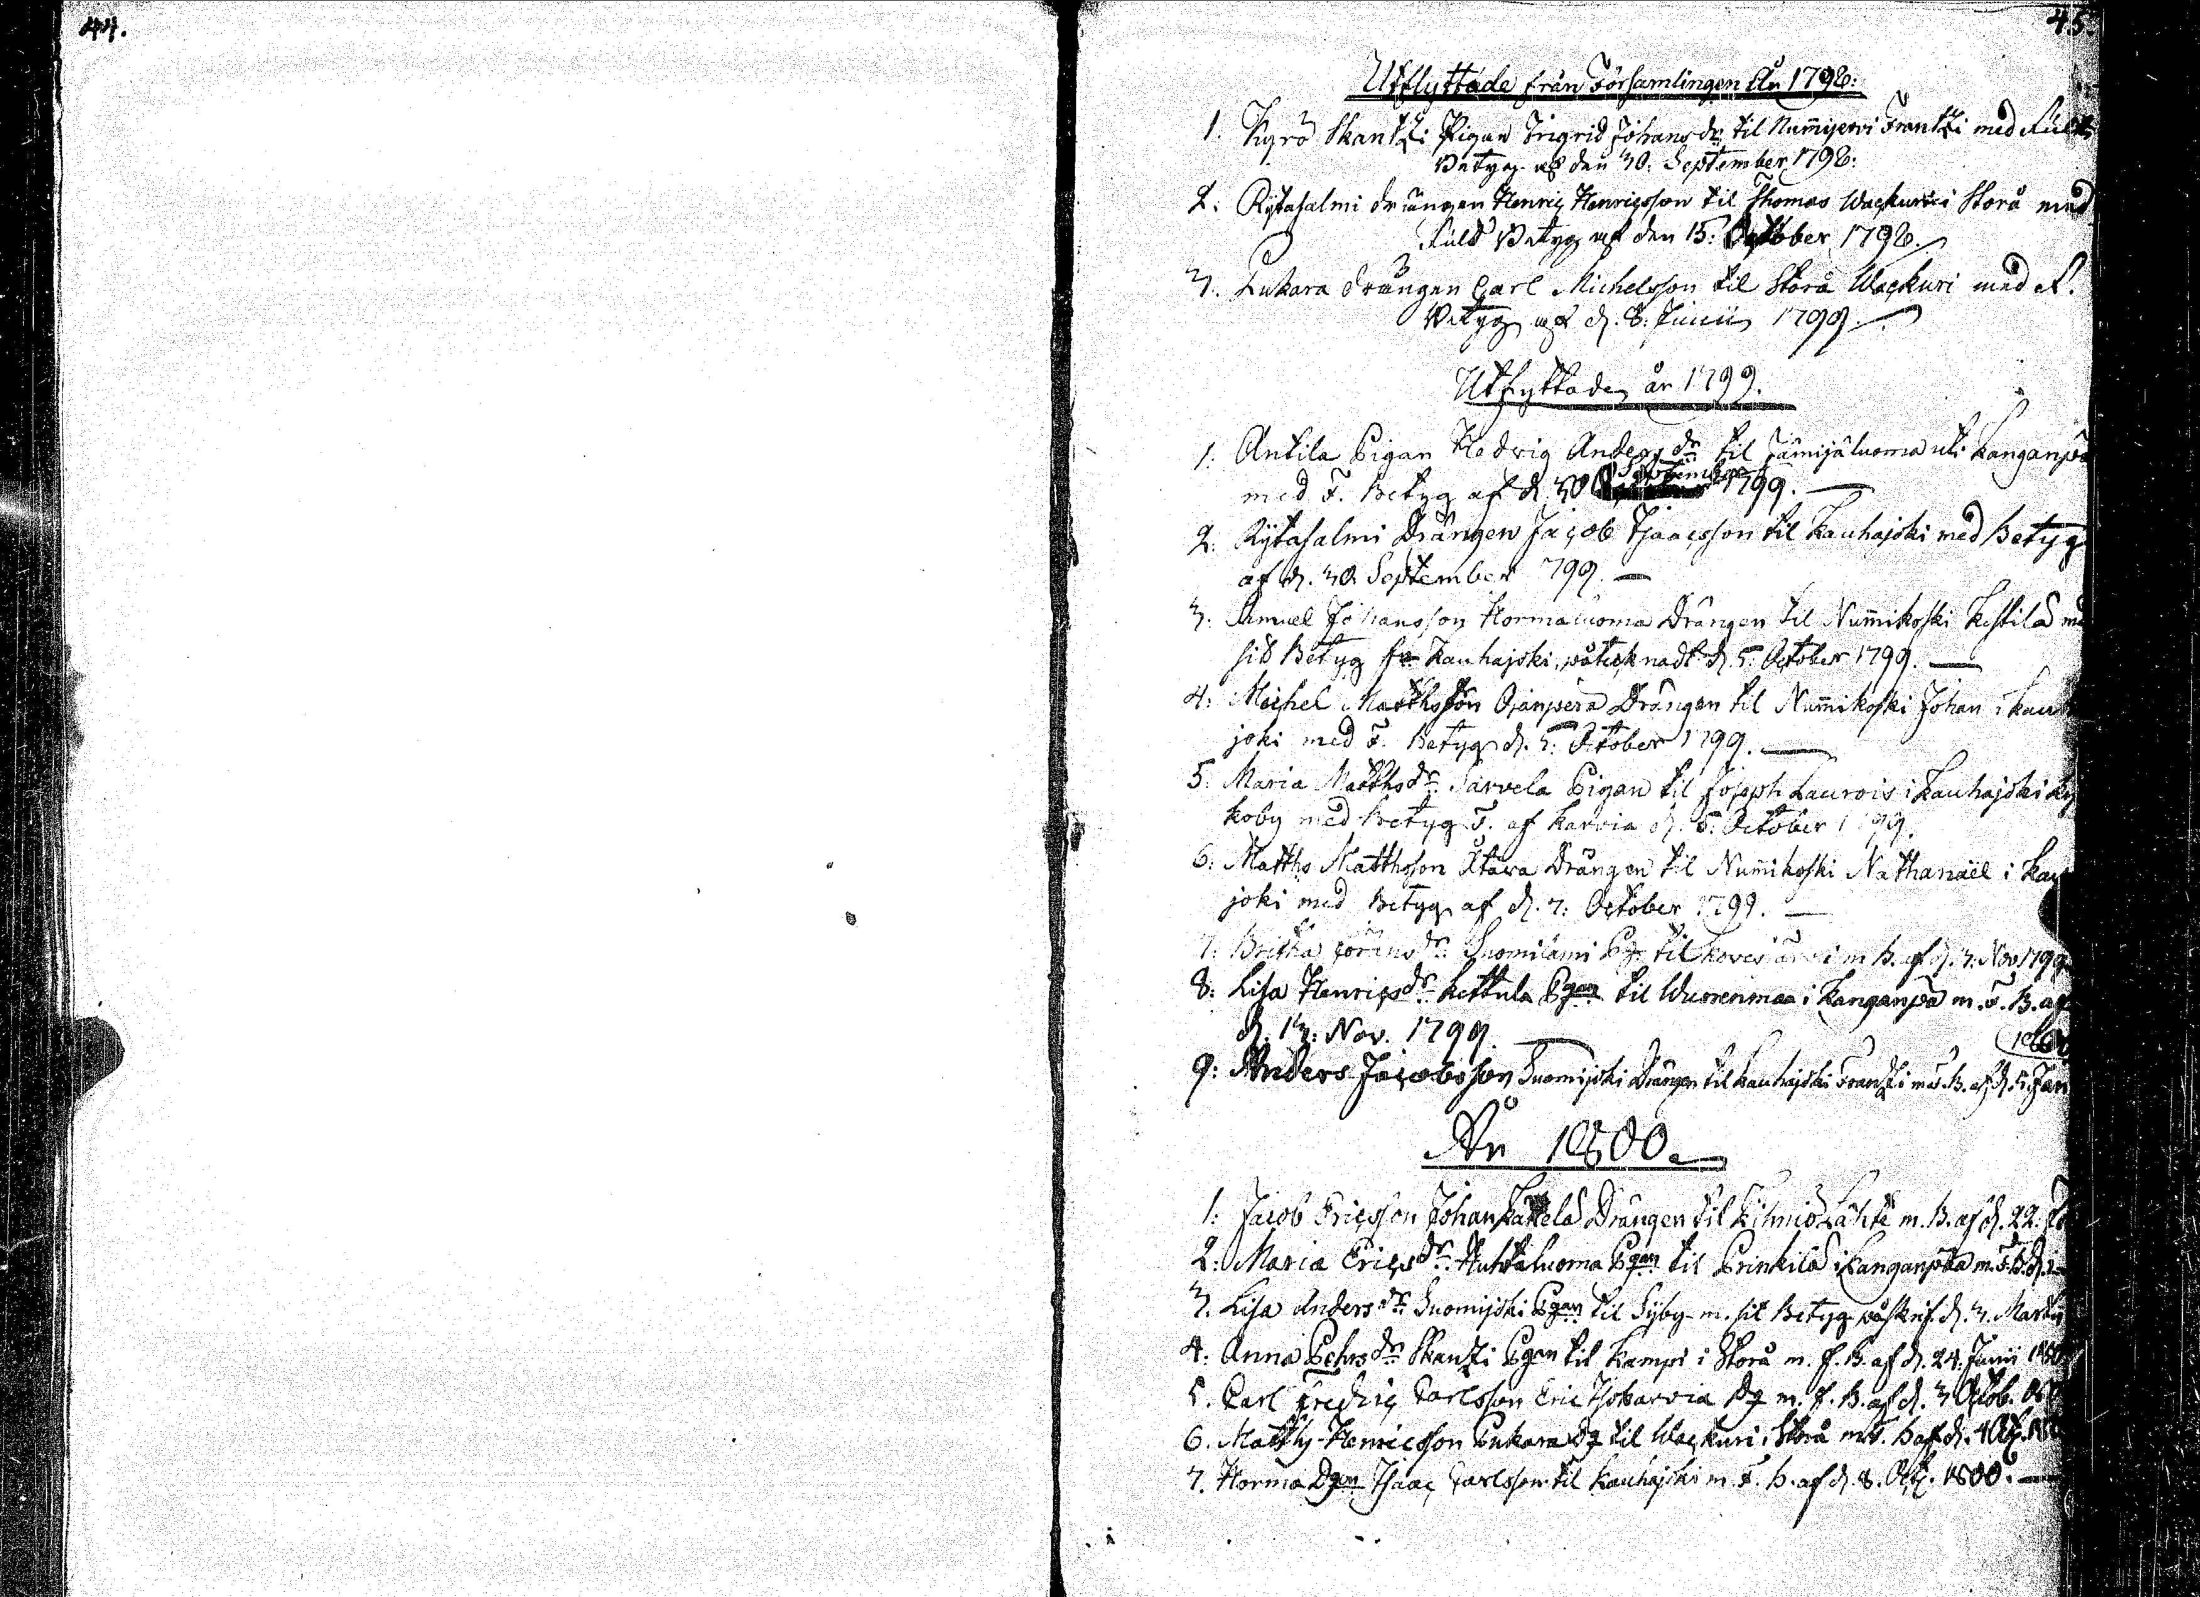 44.
45.
Utflyttade från Församlingen År 1798:
1. Kyrö Skantzi Pigan Ingrid Johansdr til Num̃ijervi Frantzi med Fult
Betyg af den 30: September 1798:
2. Rytasalmi drängen Henric Henricsson til Thomas Wackuri i Storå med
Fuld Betyg af den 15: October 1798.
3. Lukara drängen Carl Michelsson til Storå Wackuri med F.
Betyg af d. 8: Junii 1799.
Utflyttade år 1799.
1: Antila Pigan Hedvig Andersdr til Jämijäluoma uti Kanganpä
med F. Betyg af d. 30 September 1799.
2: Rytasalmi Drängen Jacob Isaacsson til Kauhajoki med Betyg
af d. 30 September 799.
3: Samuel Johansson Hormaluoma Drängen til Num̃ikoski Kestilä
sit Betyg fr Kauhajoki, påteknadt d. 5: October 1799.
4: Michel Matthsson Ojanperä Drängen til Num̃ikoski Johan i Kau
joki med F. Betyg d. 5: October 1799.
5: Maria Matthsdr Sarvela Pigan til Joseph Laurois i Kauhajoki
koby med Betyg F. af Karvia d. 5: October 1799.
6: Matths Matthsson Ätärä Drängen til Num̃ikoski Nathanaël i Kau
joki med Betyg af d. 7: October 1799.
7: Britha Göransdr Suomilami Pg til Kovesjärvi m B. af d. 7: Nov 1799
8: Lisa Henricsdr Kettula Pgan til Wuorenmaa i Kanganpä m. F. B. af
d. 13: Nov. 1799.
9: Anders Jacobsson Suomijoki Drängen til Kauhajoki Frantzi m F. B. af d. 5 Jan
År 1800.
1: Jacob Ericsson Johan Kattelä Drängen til Kihniö Lähte m. B. af d. 22:
2: Maria Ericsdr Huhtaluoma Pgan til Prinkilä i Kanganpää m. F. B. d.
3. Lisa Andersdr Suomijoki Pgan til Syby m. sit Betyg påskrif. d. 3. Martii
4: Anna Pehrsdr Skantzi Pgan til Kampi i Storå m. F. B. af d. 24. Junii 180
5. Carl Fredric Carlsson Eric Isokarvia Dg m. F. B. af d. 3 Octob.
6. Matths Henricsson Pukara Dg til Wackuri i Storå m F. B af d. 4 Oct.
7. Horma Dgen Isaac Carlsson til Kauhajoki m. F. B. af d. 8. Oct. 1800.